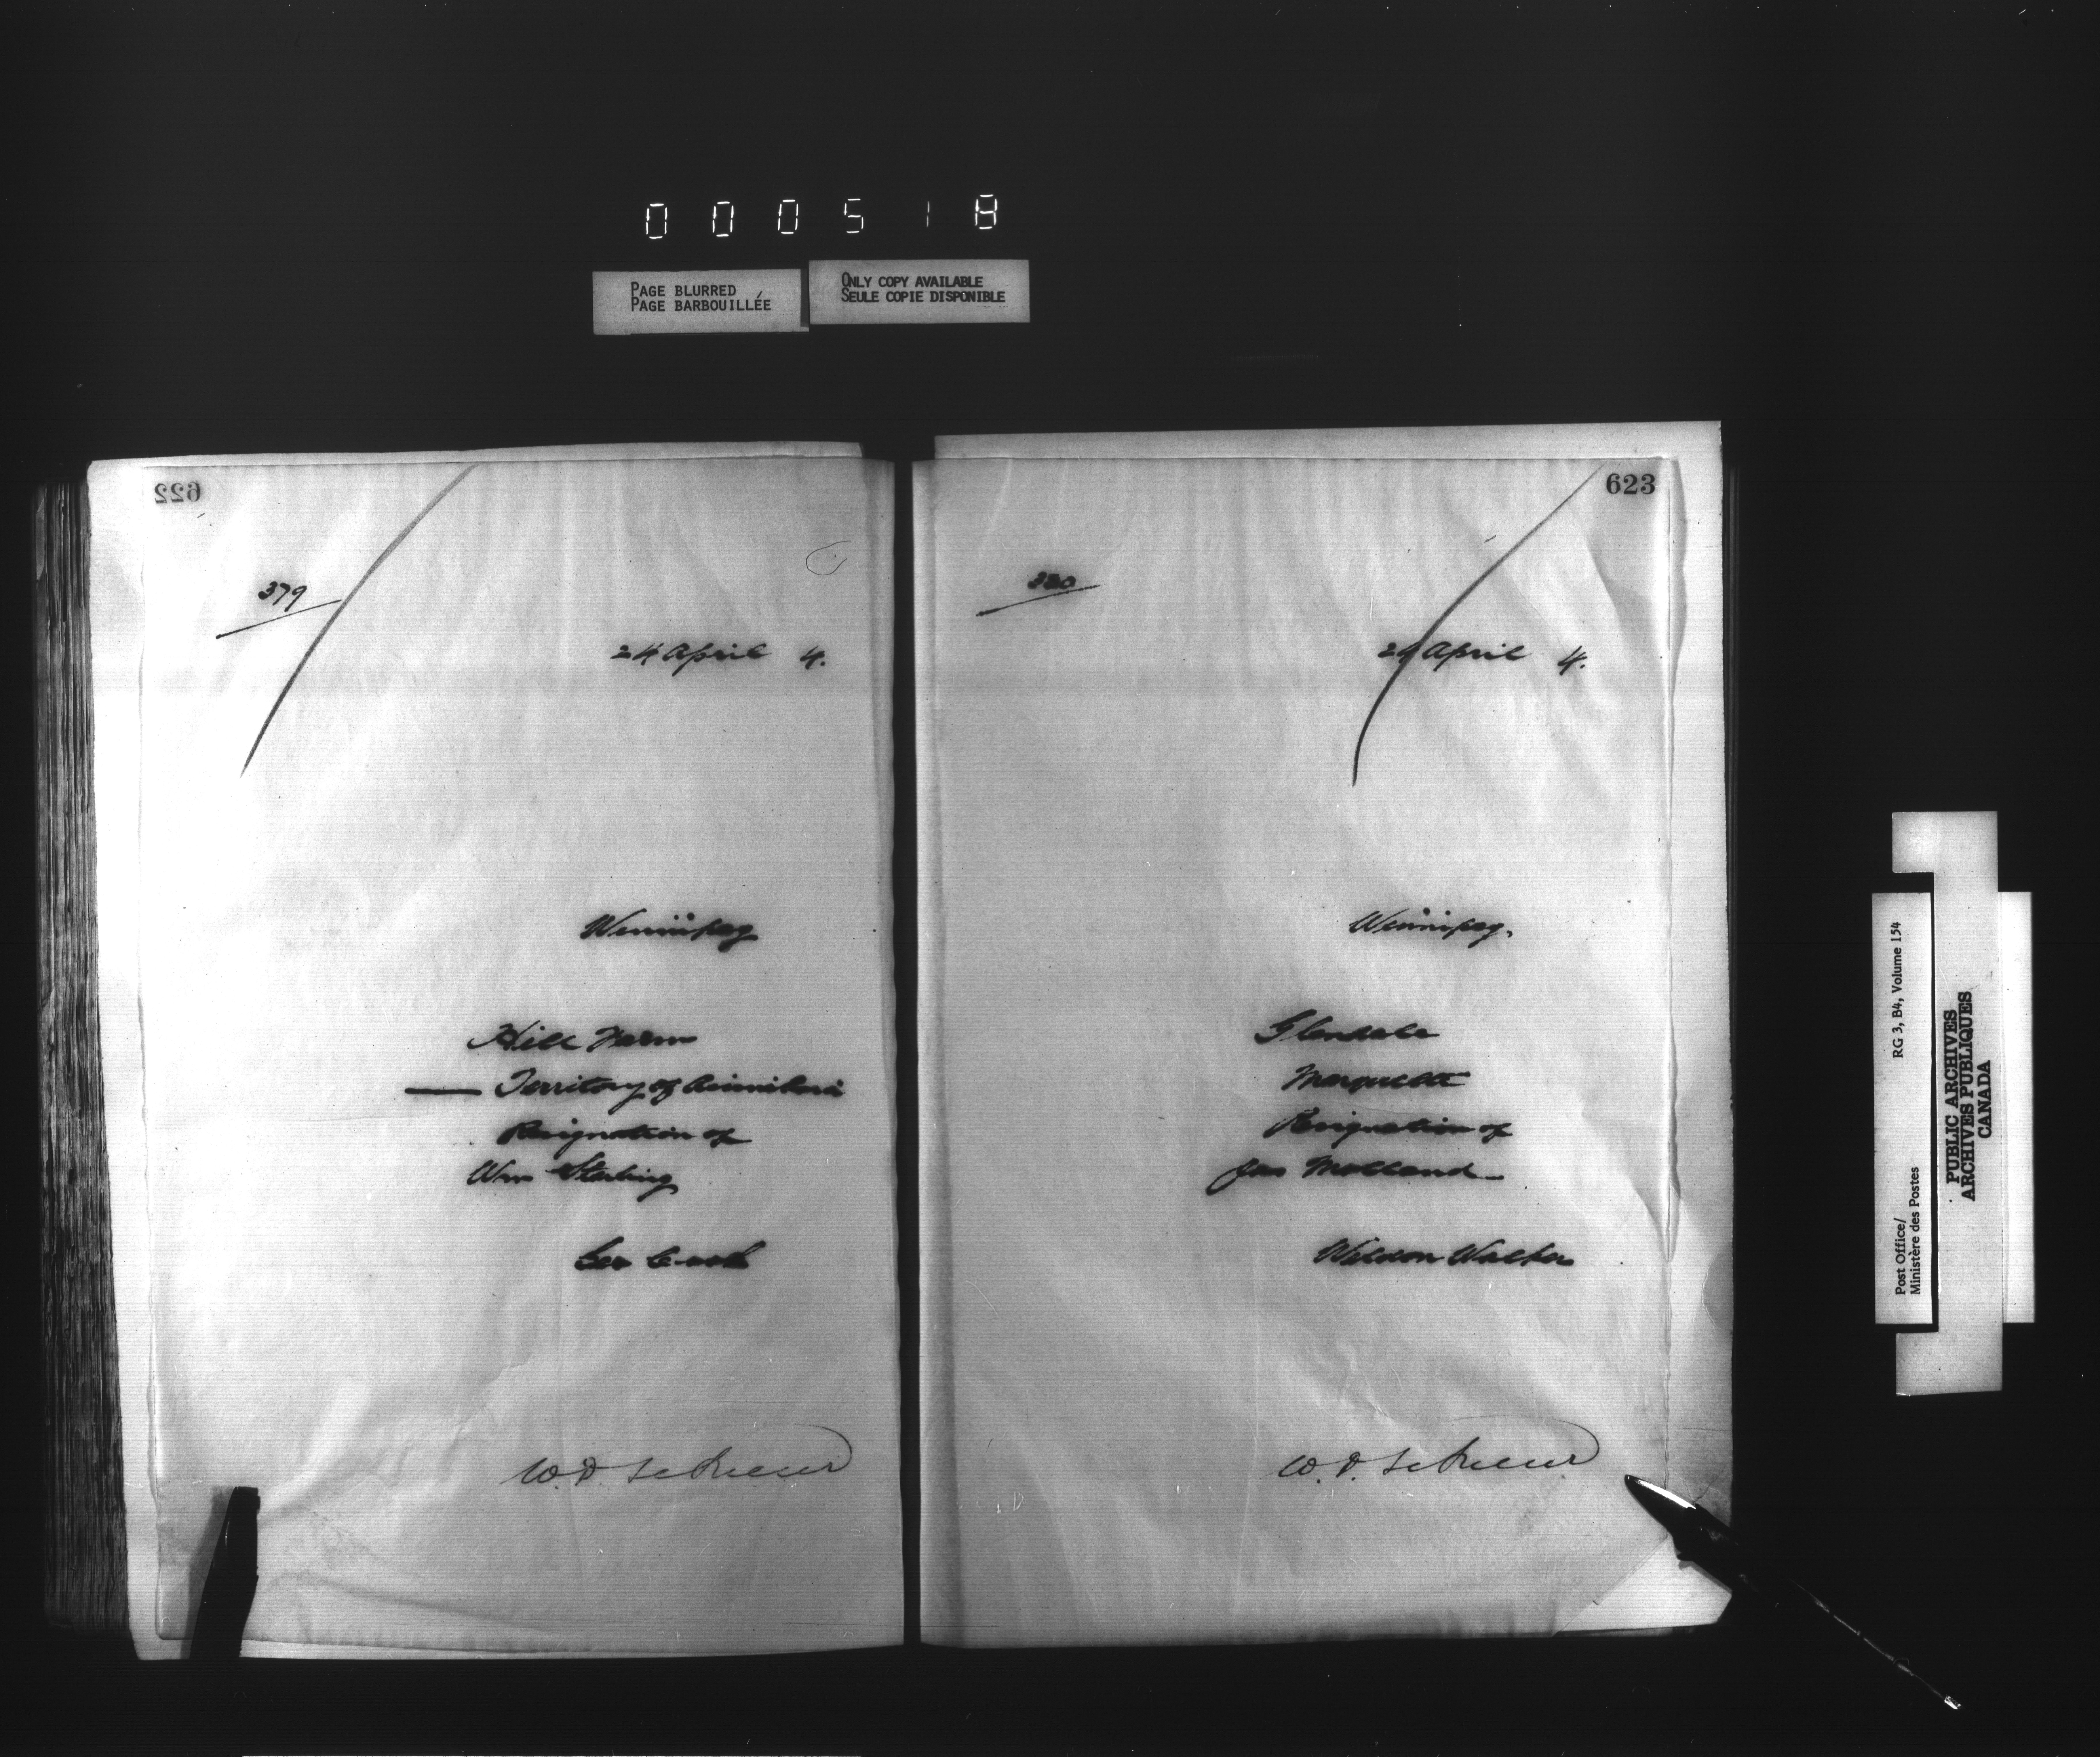 000518
PAGE BLURRED
PAGE BARBOUILLÉE
ONLY COPY AVAILABLE
SEULE COPIE DISPONIBLE
622
379
24 April 4.
Winnipeg
Hill Farm
Territory of Assiniboia
Resignation of
Wm Sterling
Geo Cook
623
380
24 April 4.
Winnipeg.
Glendale
Marquette
Resignation of
Jas
Walker
Post Office/
Ministère des Postes
RG 3, B4, Volume 154
PUBLIC ARCHIVES
ARCHIVES PUBLIQUES
CANADA